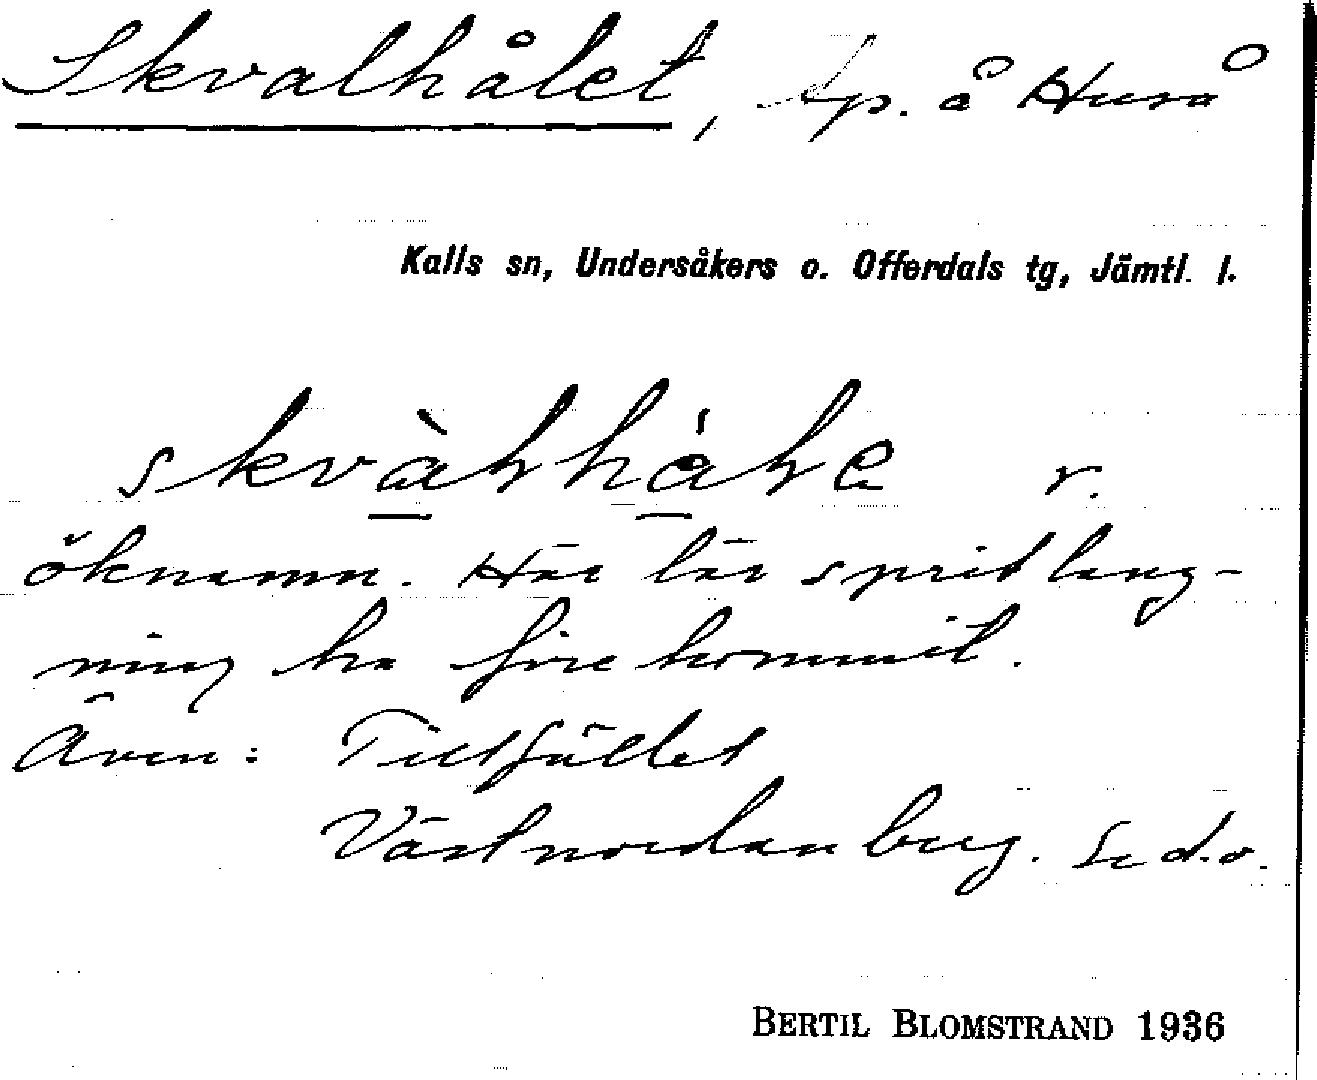 Skvalhålet, tp. å Huså
Kalls sn, Undersåkers o. Offerdals tg, Jämtl. l.
skvàlhále r.
öknamn. Här lär spritläng-
ning ha förekommit.
Även: Tillfället
Västnordanberg. Se d.o.
BERTIL BLOMSTRAND 1936